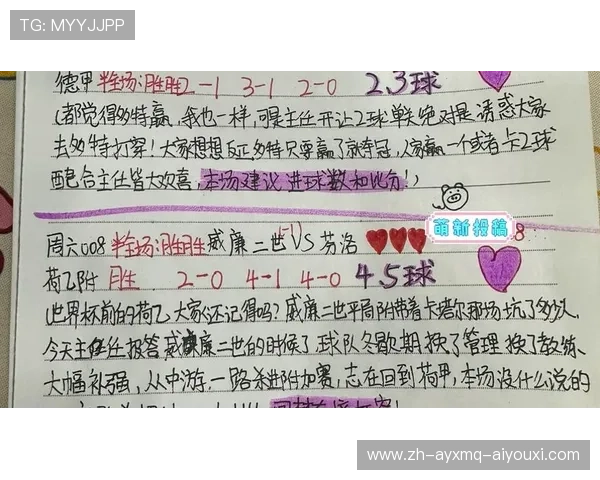 TG: MYYJJPP
德甲 半全场:胜胜 2-1 3-1 2-0 2,3球
(都觉得多特赢,我也一样,可是主任开让2球单关绝对是诱惑大家
去多特打穿!大家想想反正多特只要赢了就夺冠,人家赢一个或者卡2球
配合主任皆大欢喜,本场建议进球数和比分!)
萌新投稿
周六008 半全场:胜胜 威廉二世-1VS芬洛 8
荷乙附 胜 2-0 4-1 4-0 4,5球
(世界杯前的荷乙大家还记得吗?威廉二世平局附带着卡塔尔那场坑了多少人
今天主任任报答威廉二世的时候了 球队冬歇期换了管理 换了教练
大幅补强,从中游一路杀进附加赛,志在回到荷甲,本场没什么说的
www.zh-ayxmq-aiyouxi.com